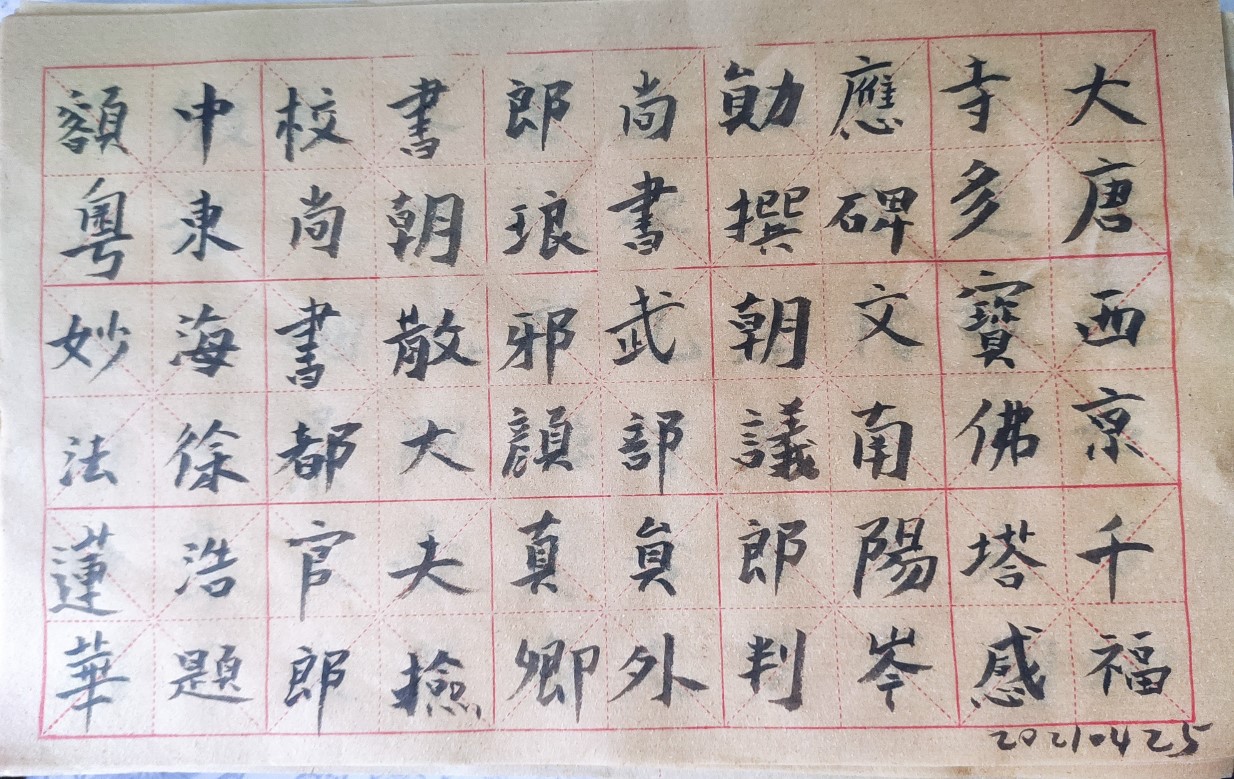 大唐西京千福
寺多寶佛塔感
應碑文南陽岑
勛撰朝議郎判
尚書武部員外
郎琅邪顏真卿
書朝散大夫撿
校尚書都官郎
中東海徐浩題
額粵妙法蓮華
20210425